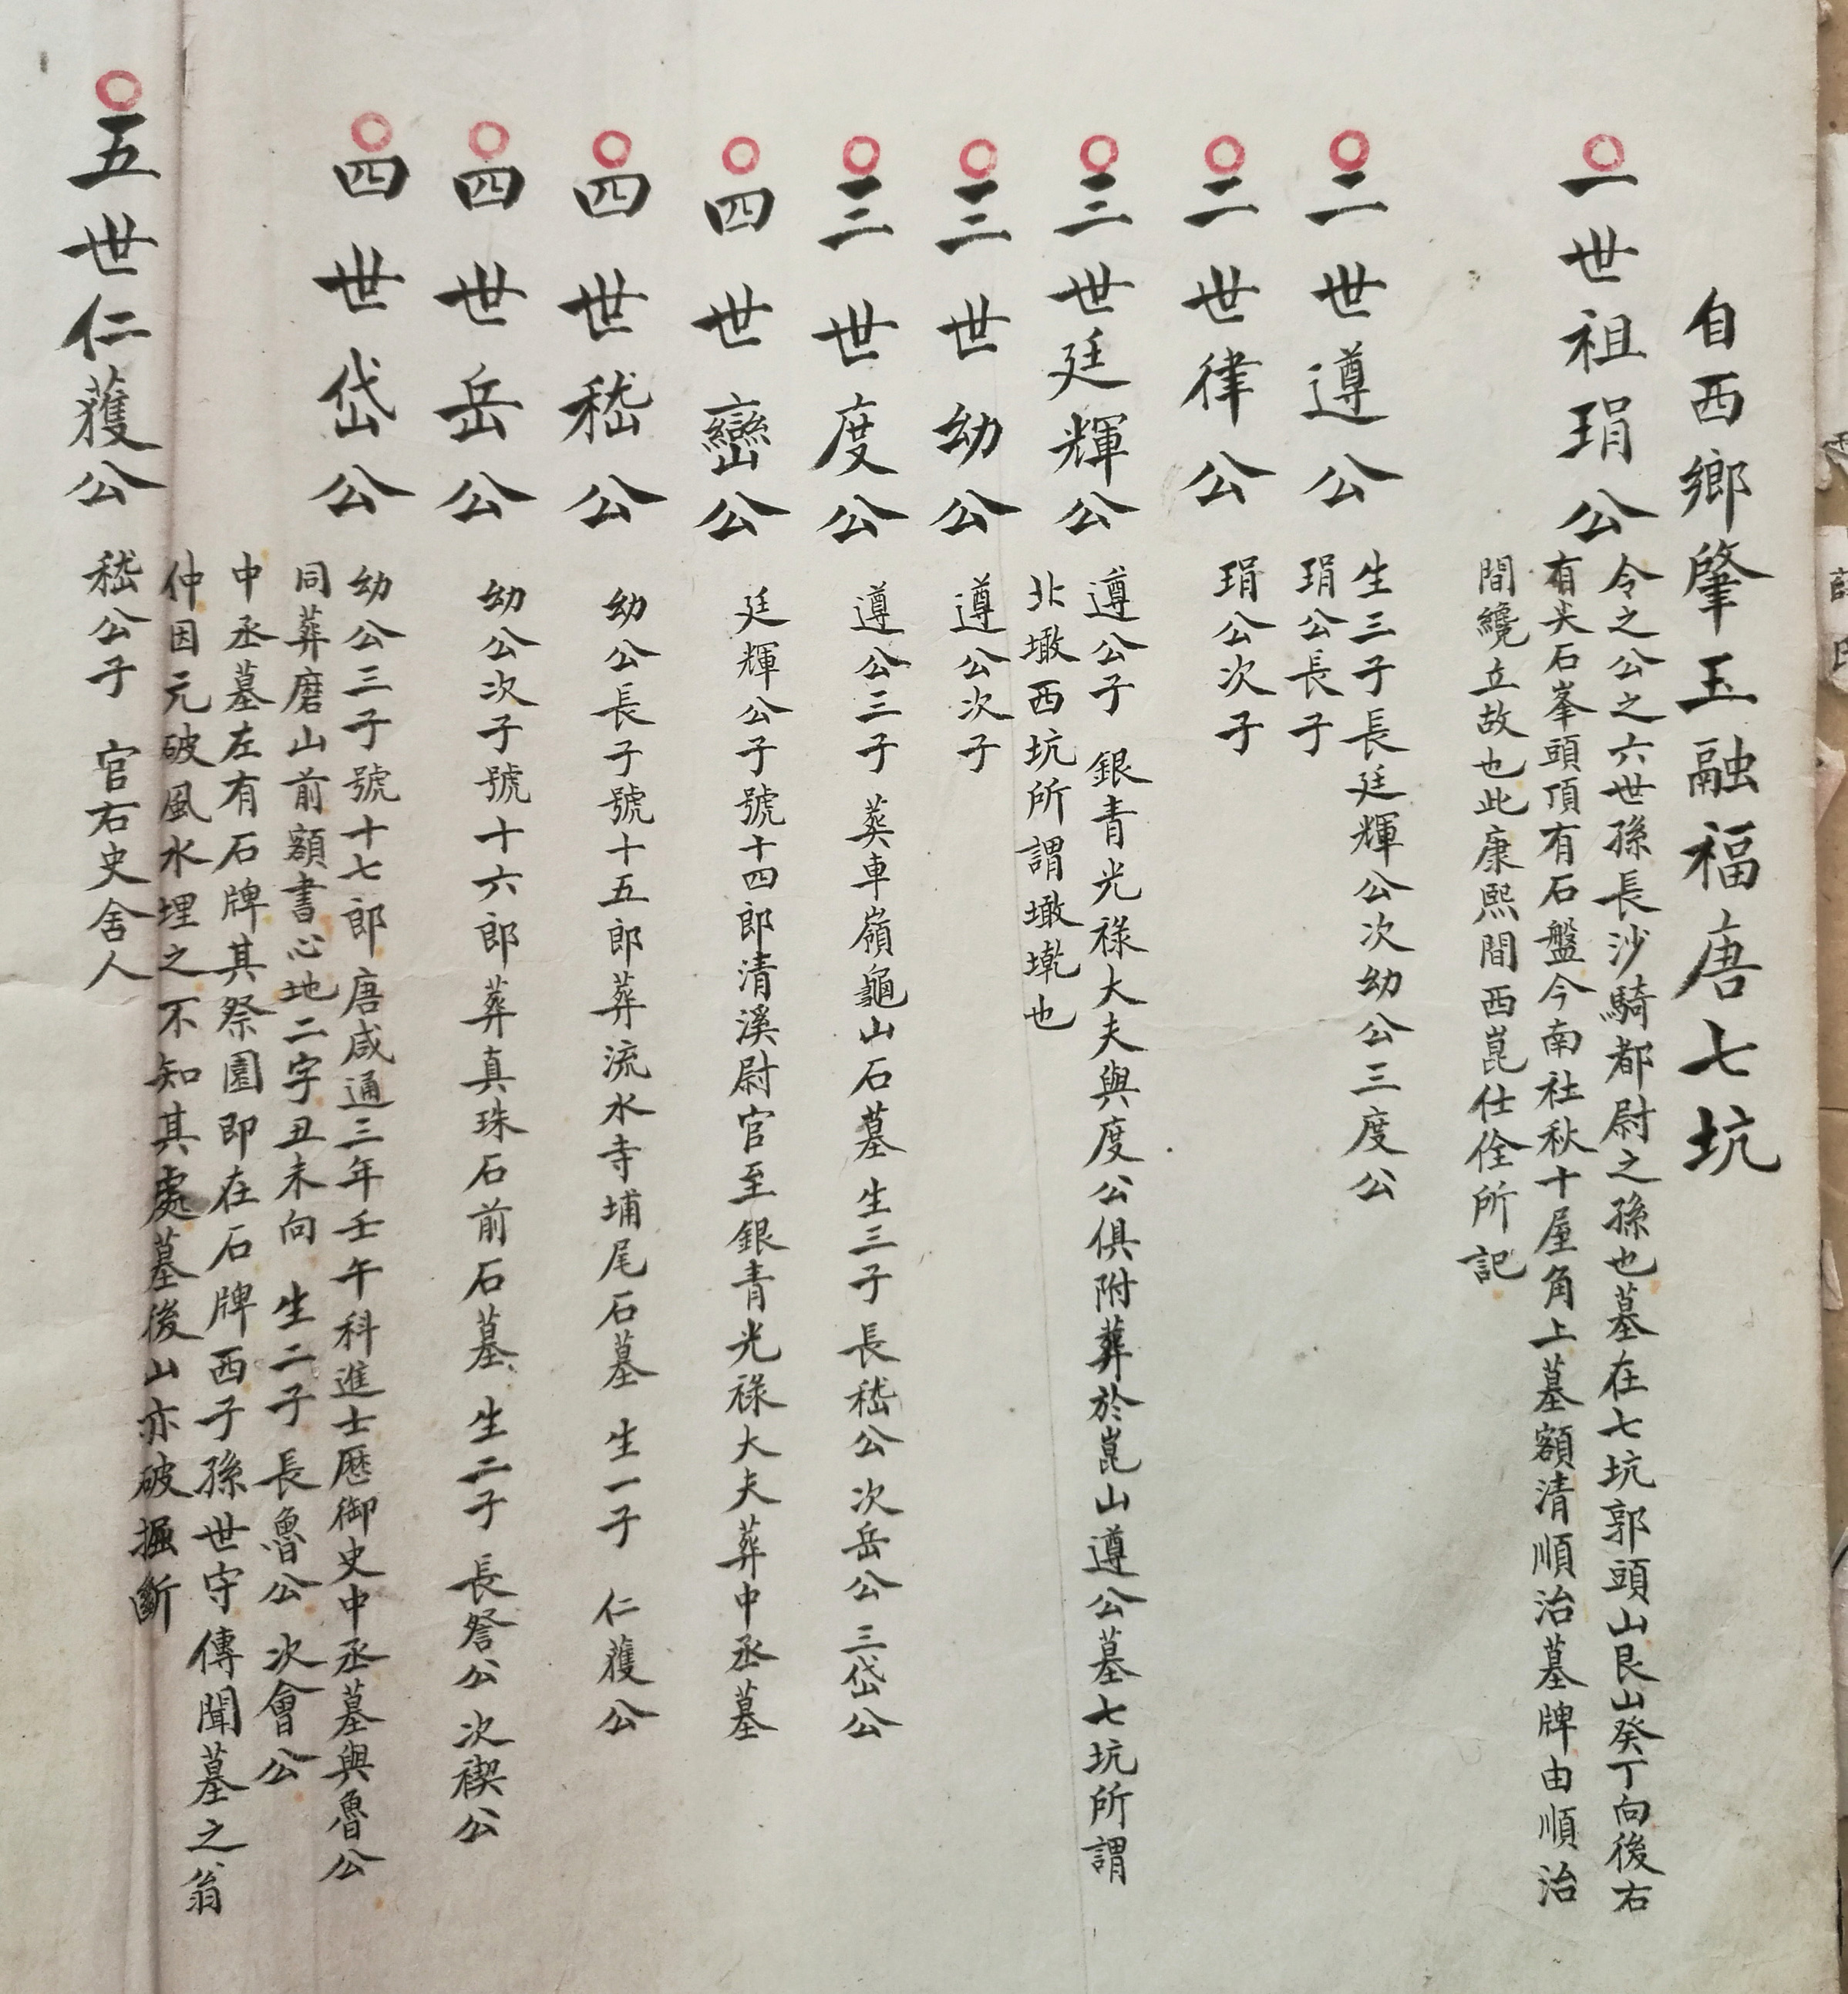 自西鄉肇玉融福唐七坑
一世祖琄公
令之公之六世孫長沙騎都尉之孫也墓在七坑郭頭山艮山癸丁向後右
有尖石峯頭頂有石盤今南社秋十屋角上墓額清順治墓牌由順治
間纔立故也此康熙間西崑仕佺所記
二世遵公
生三子長廷輝公次幼公三度公
琄公長子
二世律公
琄公次子
三世廷輝公
遵公子 銀青光祿大夫與度公俱附葬於崑山遵公墓七坑所謂
北墩西坑所謂墩墘也
三世幼公
遵公次子
三世度公
遵公三子 葬車嶺龜山石墓 生三子長嵇公次岳公三岱公
四世巒公
廷輝公子號十四郎清溪尉官至銀青光祿大夫葬中丞墓
四世嵇公
幼公長子號十五郎葬流水寺埔尾石墓 生一子 仁蒦公
四世岳公
幼公次子號十六郎葬真珠石前石墓 生二子 長詧公 次禊公
四世岱公
幼公三子號十七郎唐咸通三年壬午科進士歷御史中丞墓與魯公
同葬磨山前額書心地二字丑未向 生二子 長魯公 次會公
中丞墓左有石牌其祭園即在石牌西子孫世守傳聞墓之翁
仲因元破風水埋之不知其處墓後山亦破掘斷
五世仁蒦公
嵇公子 官右史舍人